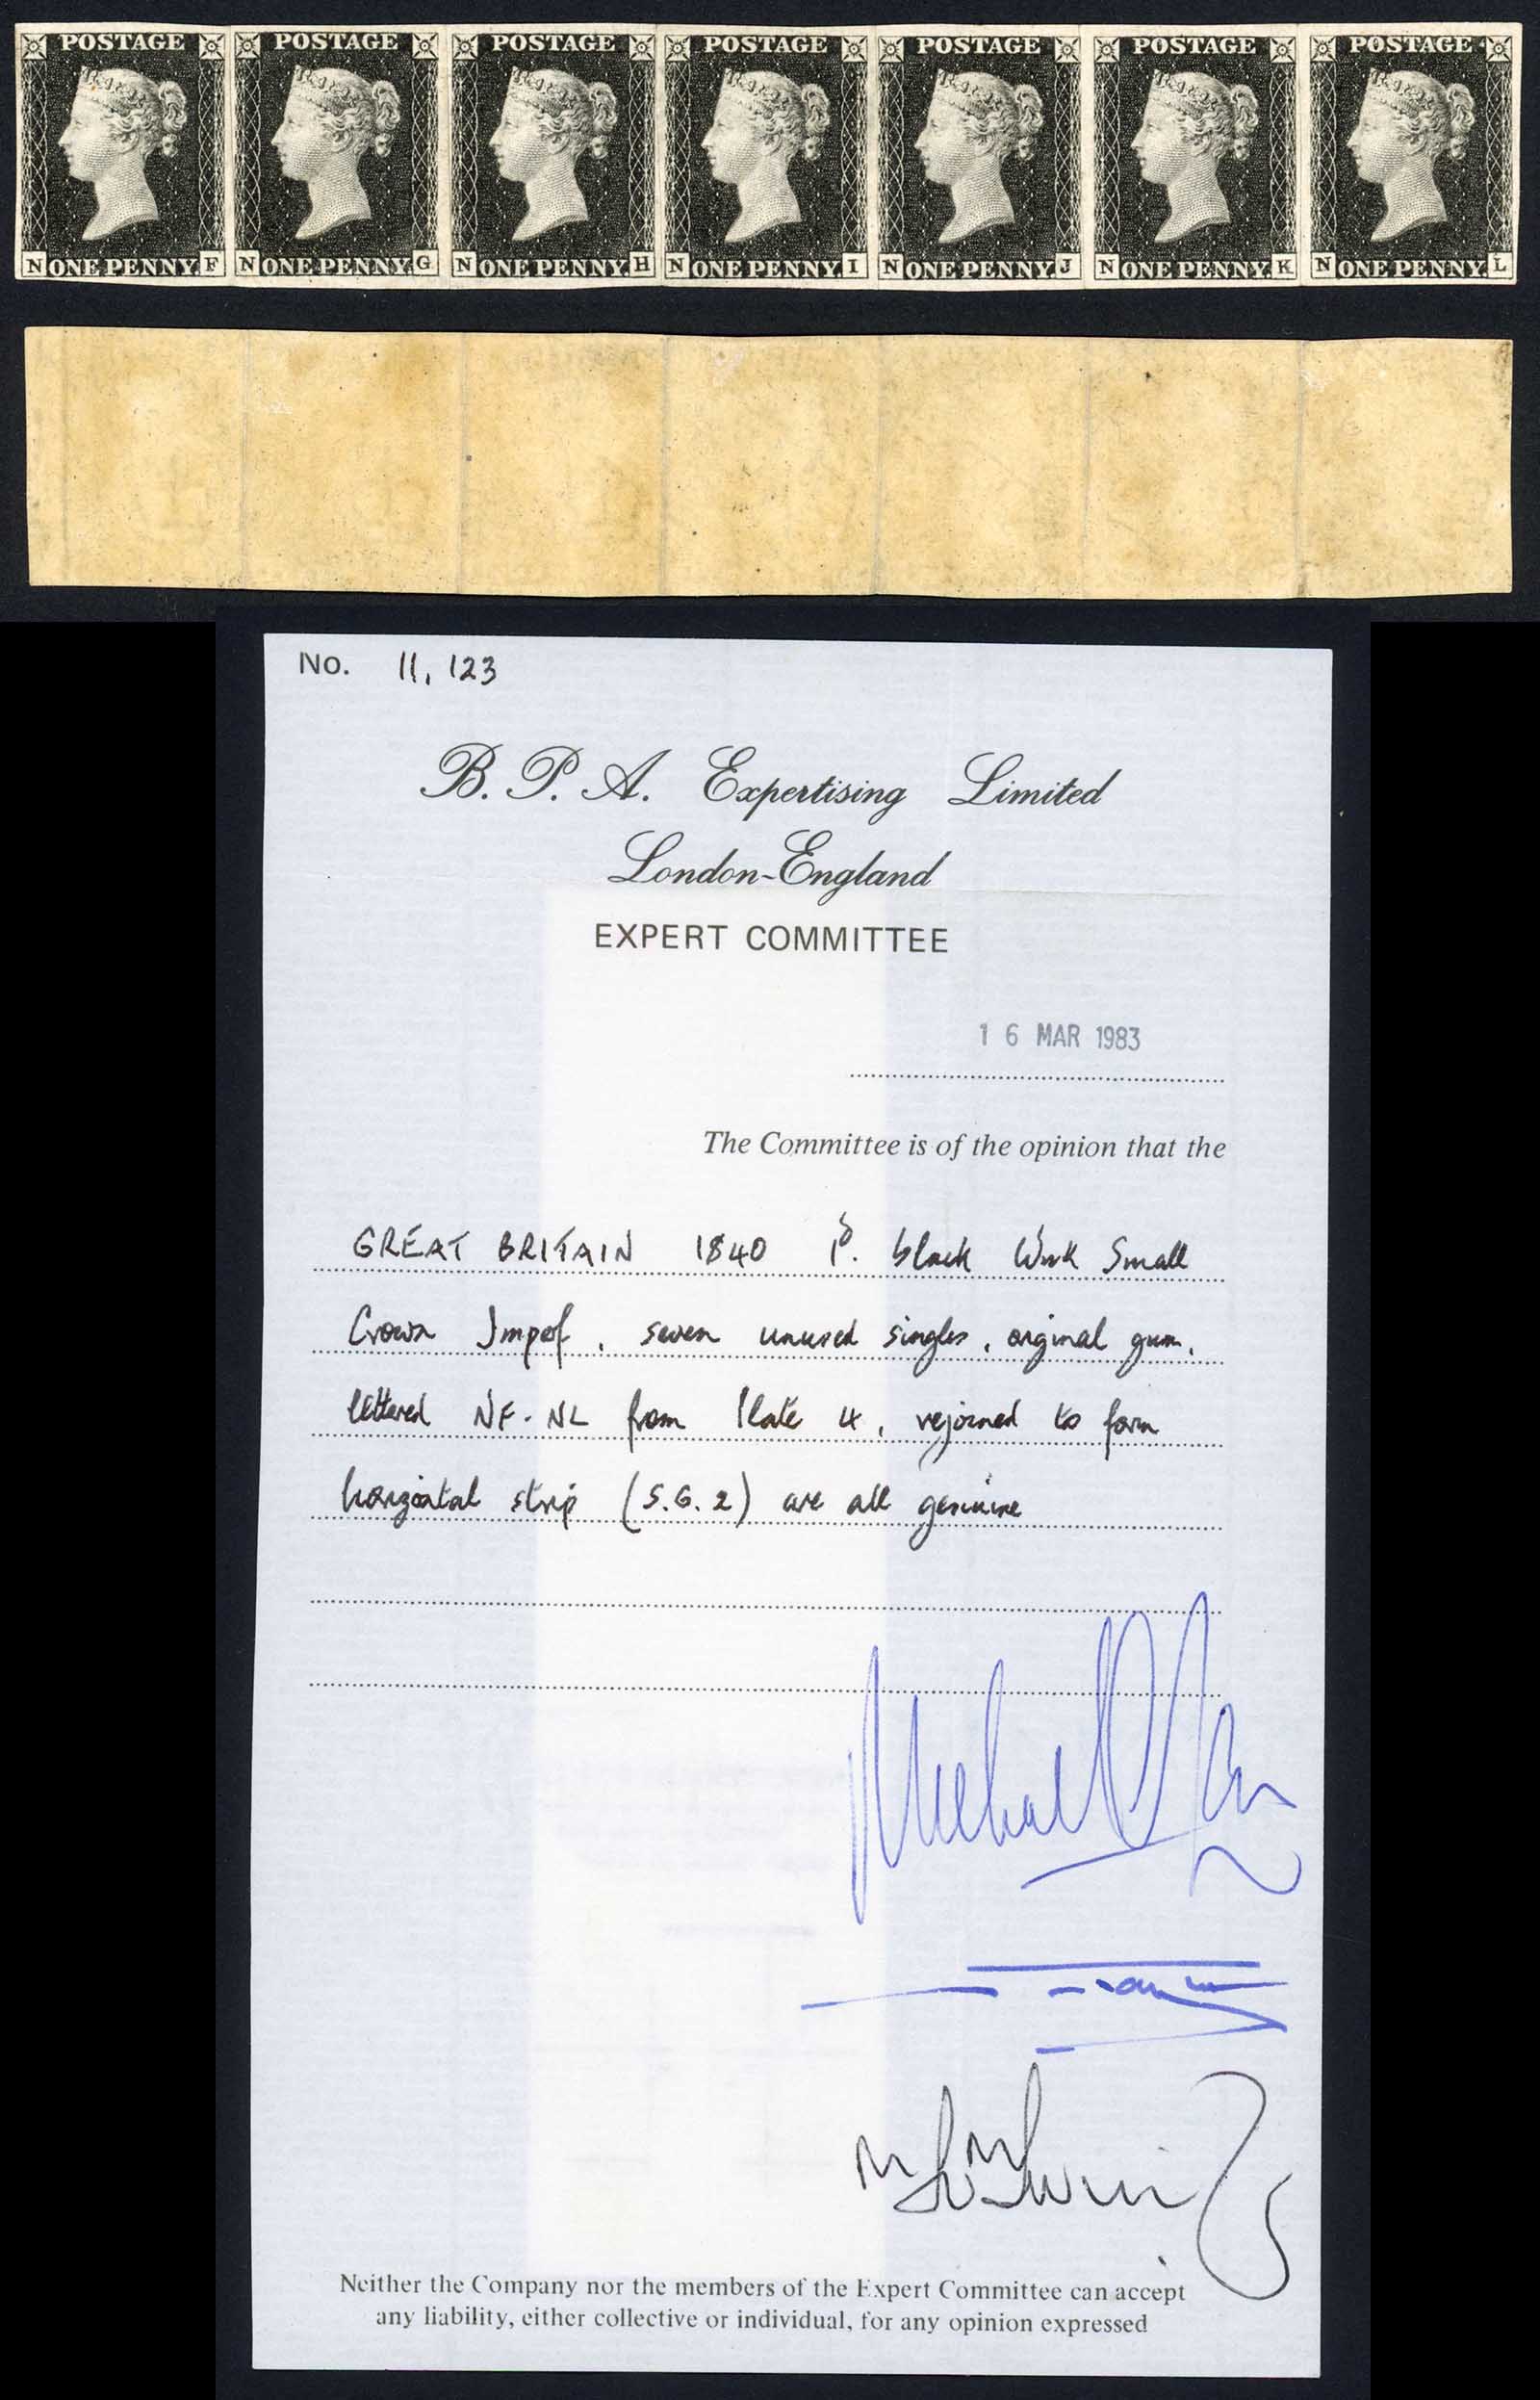 POSTAGE POSTAGE POSTAGE POSTAGE POSTAGE POSTAGE POSTAGE
N ONE PENNY. F N ONE PENNY. G N ONE PENNY. H N ONE PENNY. I N ONE PENNY. J N ONE PENNY. K N ONE PENNY. L
No. 11,123
B. P. A. Expertising Limited
London-England
EXPERT COMMITTEE
16 MAR 1983
The Committee is of the opinion that the
GREAT BRITAIN 1840 1d. black Wmk Small
Crown Imperf, seven unused singles, original gum,
lettered NF-NL from Plate 4, rejoined to form
horizontal strip (S.G.2) are all genuine
Michael
Neither the Company nor the members of the Expert Committee can accept
any liability, either collective or individual, for any opinion expressed